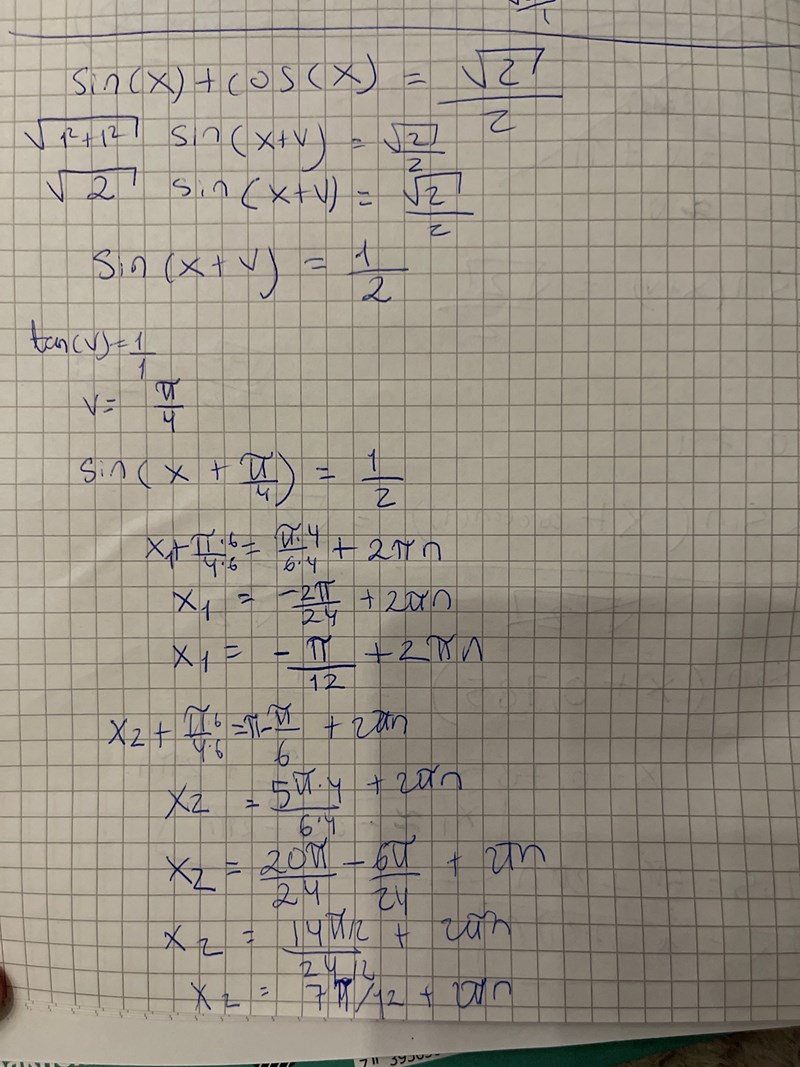 sin(x)+cos(x) = √2/2
√1²+1² sin(x+v) = √2/2
√2 sin(x+v) = √2/2
sin(x+v) = 1/2
tan(v)=1/1
v= π/4
sin(x + π/4) = 1/2
x₁+π·6/4·6 = π·4/6·4 + 2πn
x₁ = -2π/24 + 2πn
x₁ = -π/12 + 2πn
x₂+π·6/4·6=π-π/6 + 2πn
x₂ = 5π·4/6·4 + 2πn
x₂ = 20π/24 - 6π/24 + 2πn
x₂ = 14π/2/24/2 + 2πn
x₂ = 7π/12 + 2πn